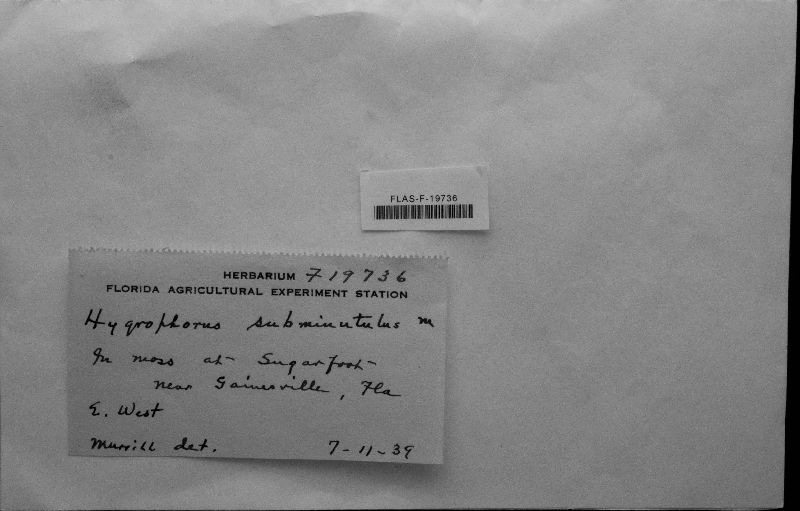 FLAS-F-19736
HERBARIUM F19736
FLORIDA AGRICULTURAL EXPERIMENT STATION
Hygrophorus subminutulus M
In moss at Sugarfoot
near Gainesville, Fla
E. West
Murrill det. 7-11-39